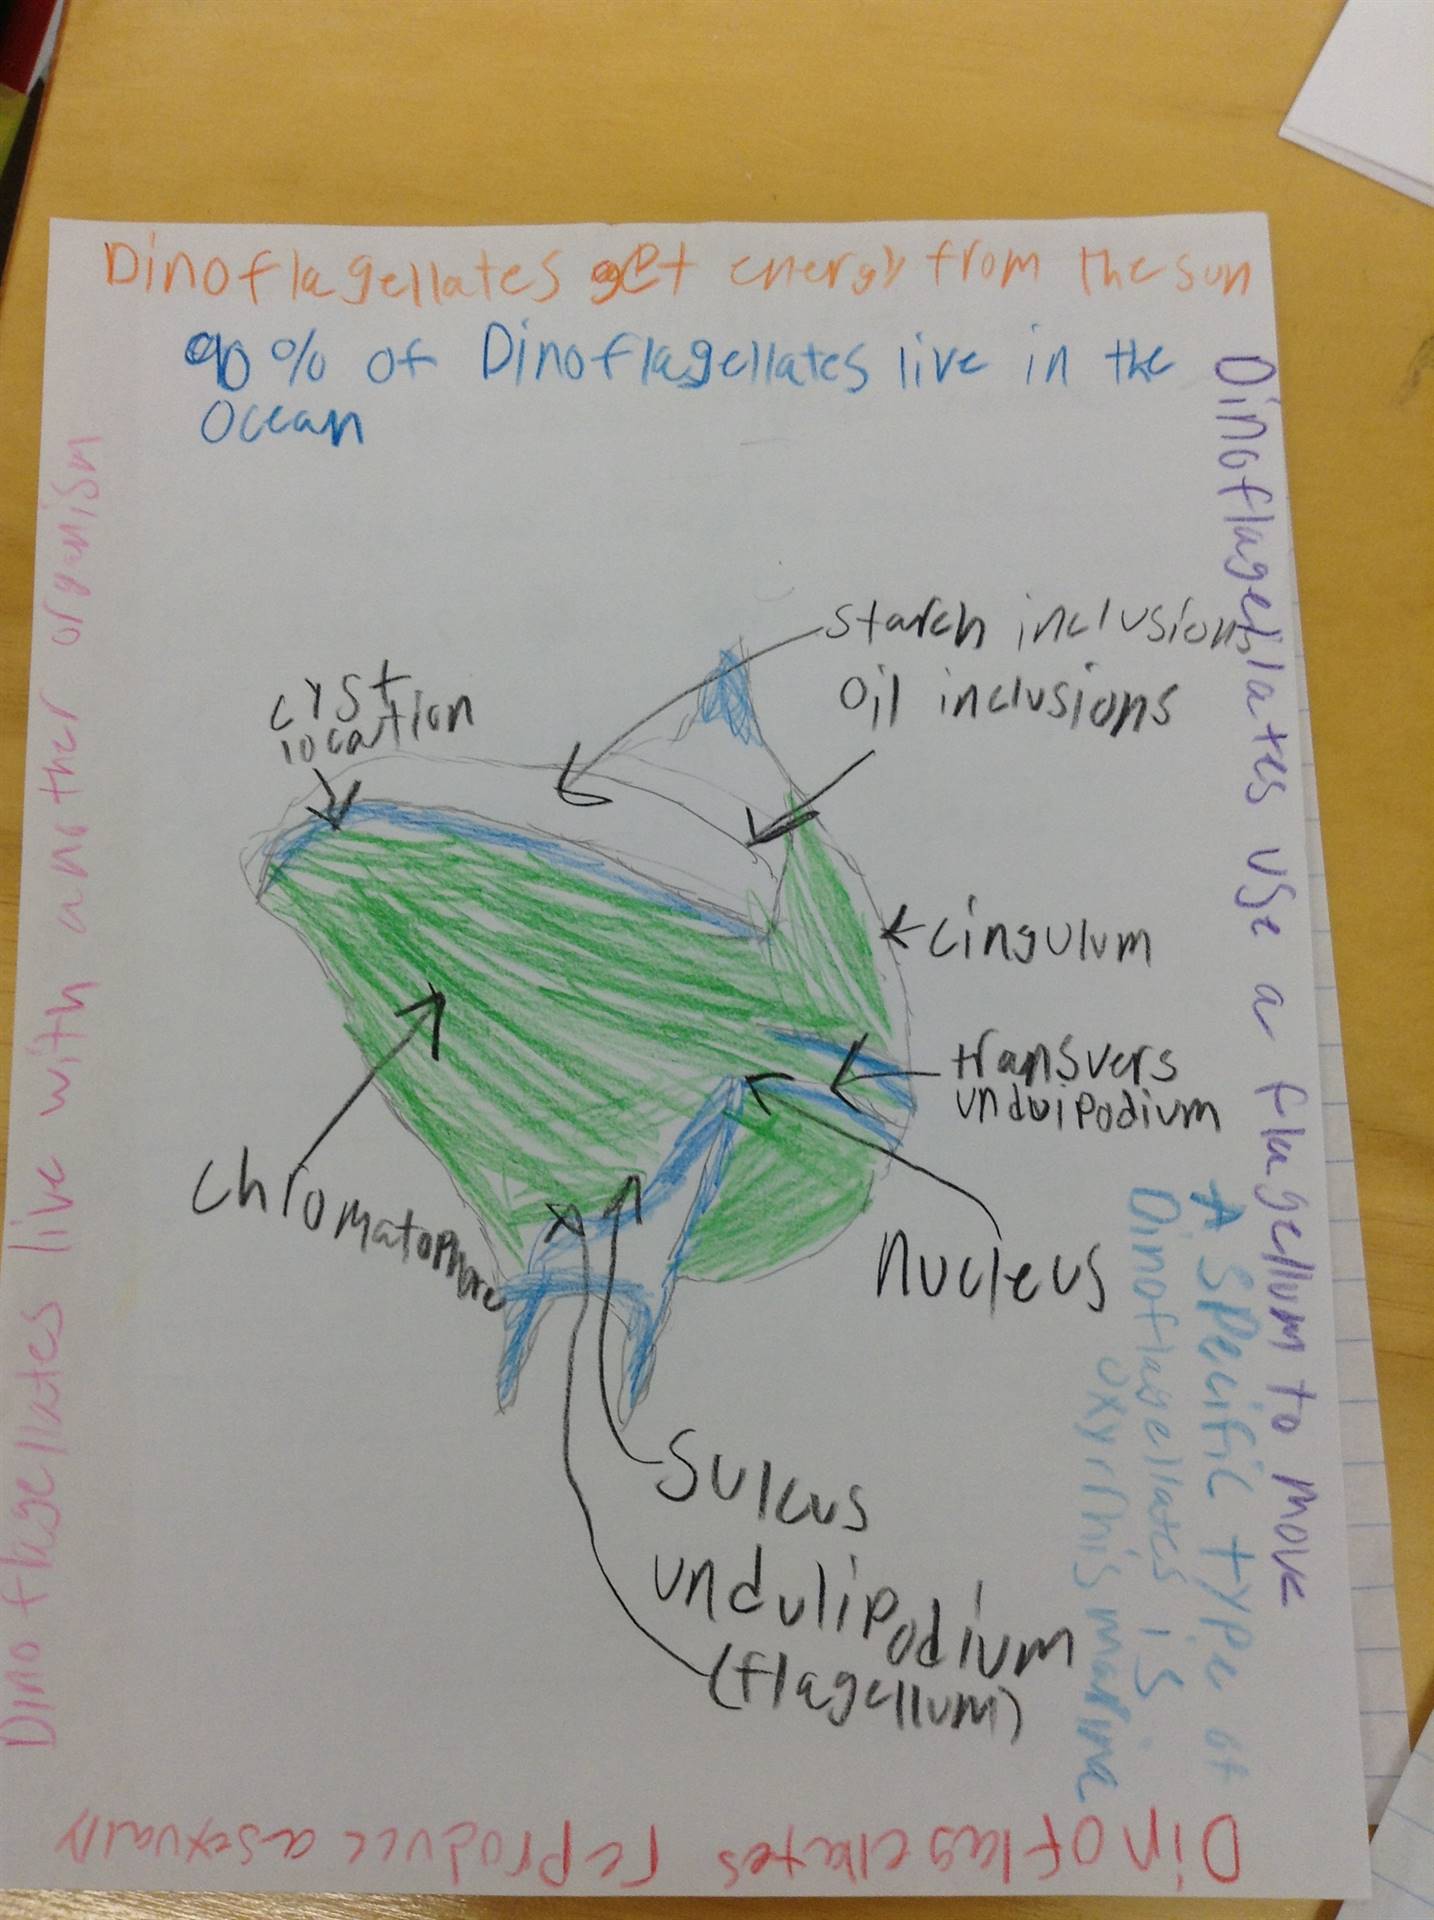 Dinoflagellates get energy from the sun
90% of Dinoflagellates live in the
Ocean
Dinoflagellates use a flagellum to move
starch inclusions
oil inclusions
cyst
location
cingulum
transvers
unduipodium
chromatophore
nucleus
A specific type of
Dinoflagellates is
oxyrrhis marina
Sulcus
undulipodium
(flagellum)
Dinoflagellates live with another organism
Dinoflagellates reproduce asexually